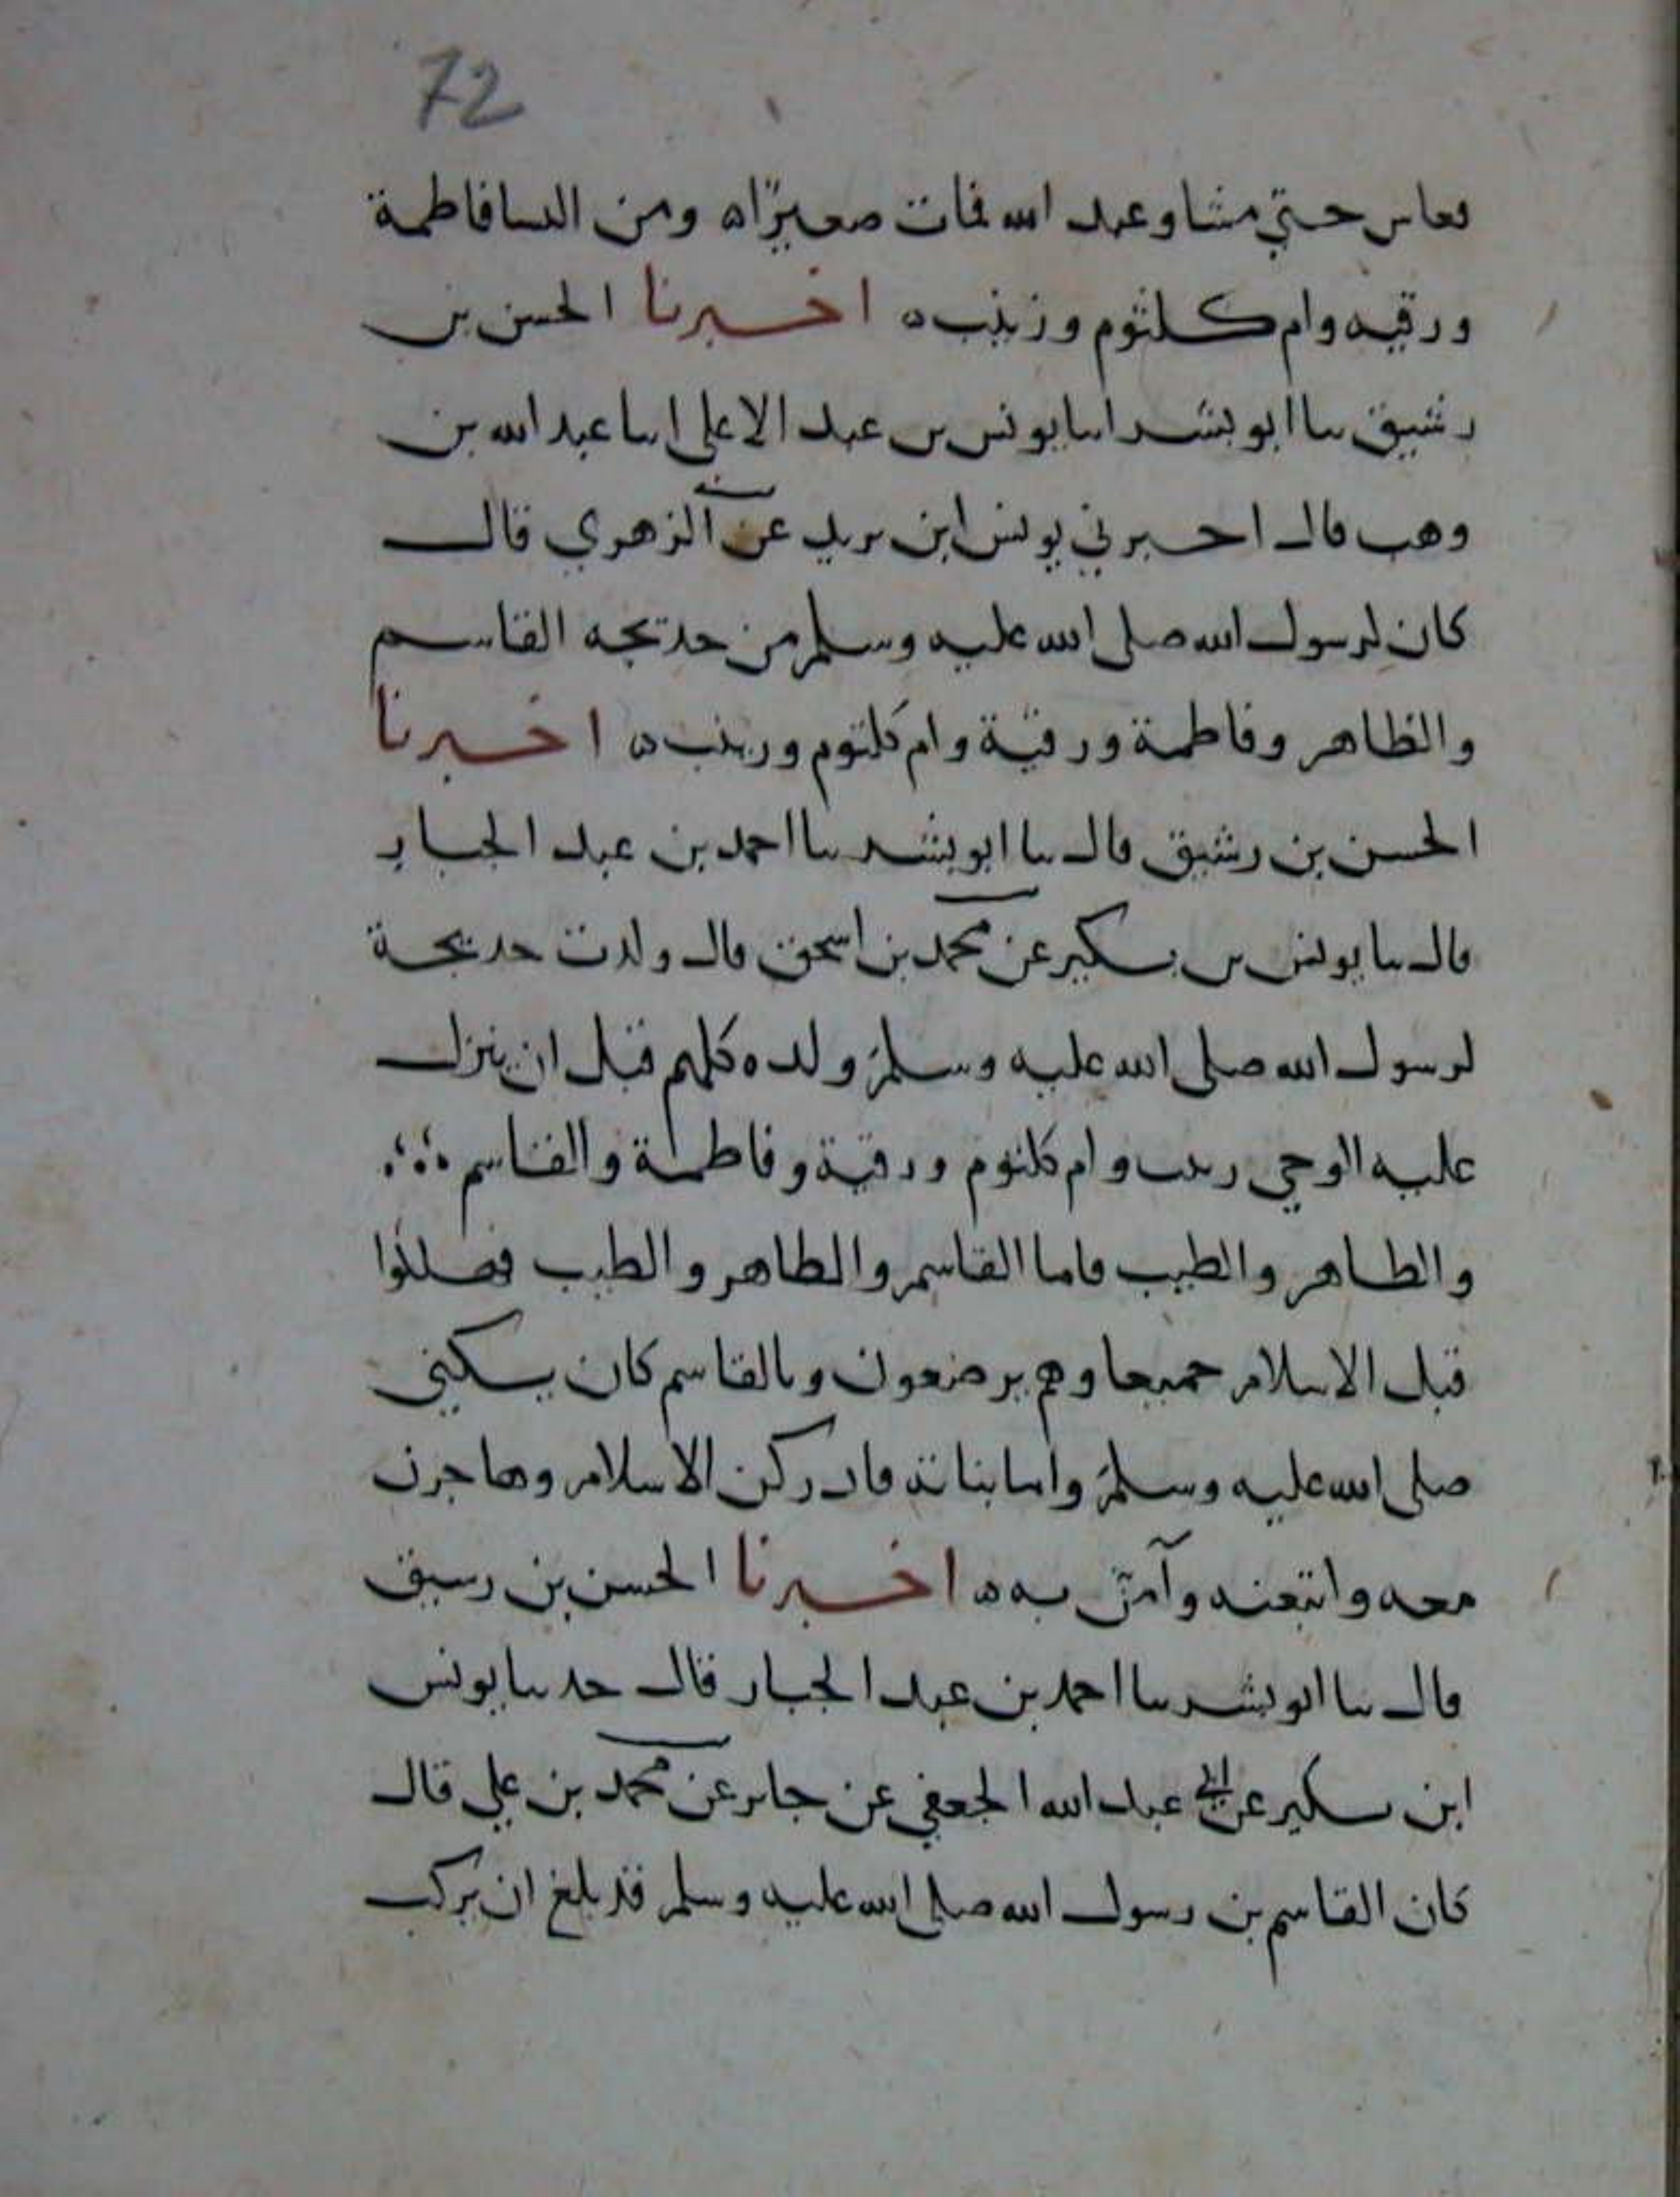 72
فعاس حتي مشا وعبد الله فمات صغيرًا ه ومن النسا فاطمة
ورقيه وام كلثوم وزينب ه اخبرنا الحسن بن
رشيق سا ابو بشر اسا يونس بن عبد الاعلى اسا عبد الله بن
وهب قال اخبرني يونس ابن يريد عن الزهري قال
كان لرسول الله صلى الله عليه وسلم من خديجه القاسم
والظاهر وفاطمة ورقية وام كلثوم وزينب ه اخبرنا
الحسن بن رشيق قال سا ابو بشر سا احمد بن عبد الجبار
قال سا يونس بن بكير عن محمد بن اسحق قال ولدت خديجة
لرسول الله صلى الله عليه وسلم ولده كلهم قبل ان ينزل
عليه الوحي زينب وام كلثوم ورقية وفاطمة والقاسم
والطاهر والطيب فاما القاسم والطاهر والطيب فهلكوا
قبل الاسلام جميعا وهم يرضعون وبالقاسم كان يكني
صلى الله عليه وسلم واما بناته فادركن الاسلام وهاجرن
معه واتبعنه وآمن به ه اخبرنا الحسن بن رسيق
قال سا ابو بشر سا احمد بن عبد الجبار قال حدسا يونس
ابن بكير عن ابي عبد الله الجعفي عن جابر عن محمد بن علي قال
كان القاسم بن رسول الله صلى الله عليه وسلم قد بلغ ان يركب